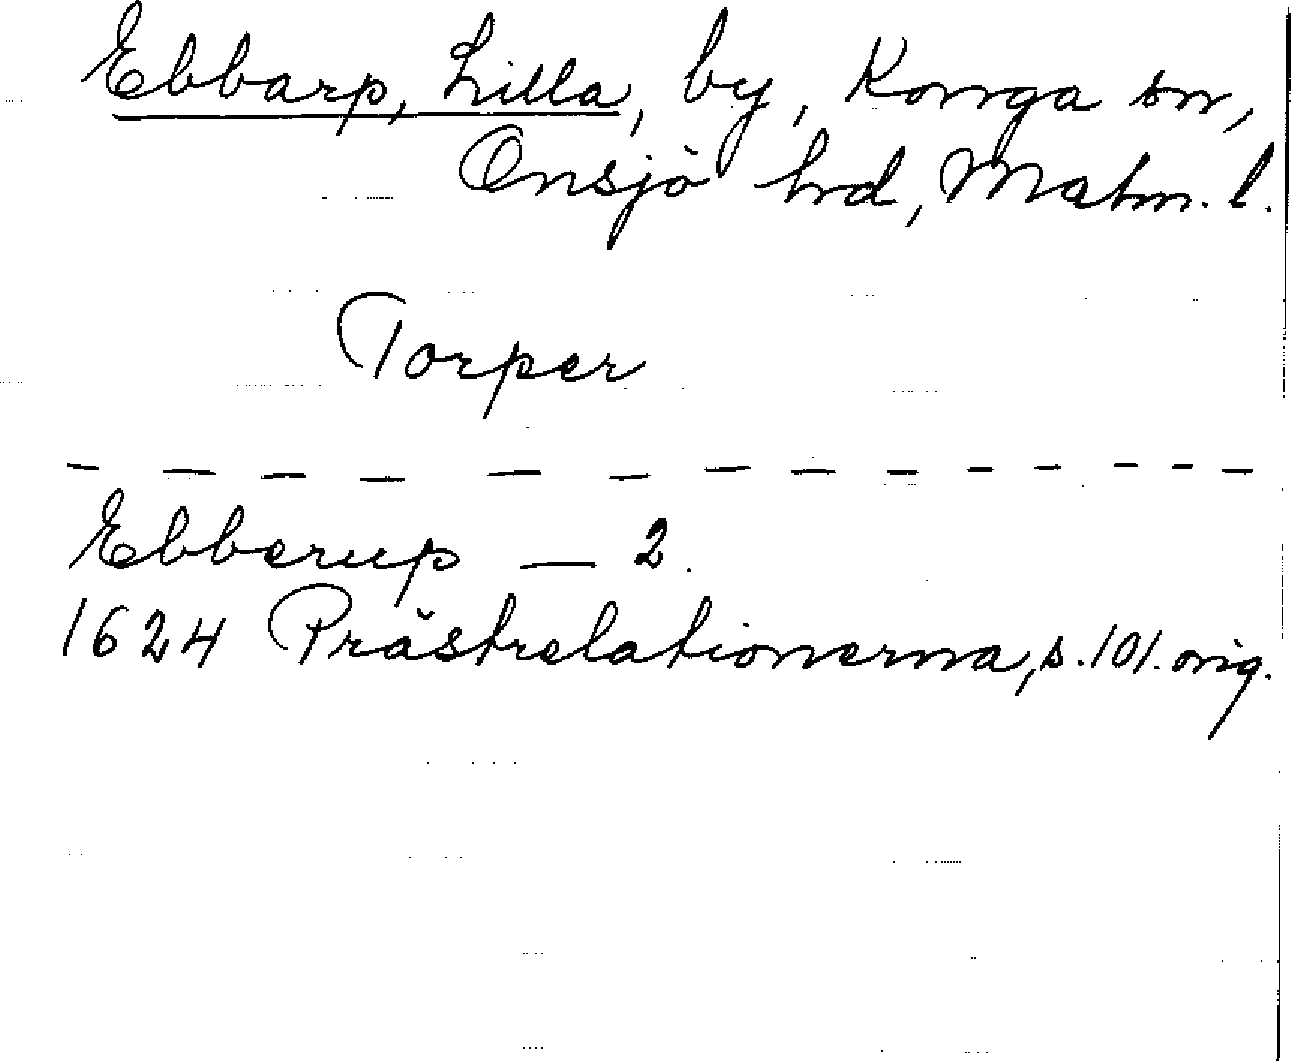 Ebbarp, Lilla, by, Konga sn,
Onsjö hrd, Malm. l.
Torper
Ebberup — 2.
1624 Prästrelationerna, s. 101. orig.